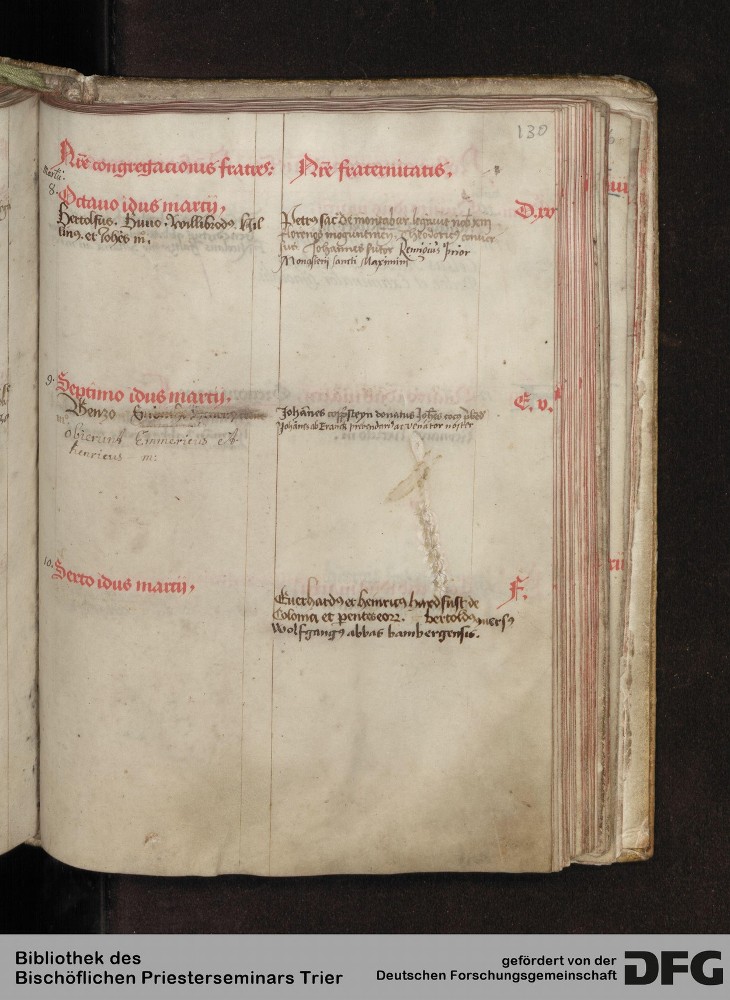 130
Nr̄e congregacionis fratres: Nr̄e fraternitatis.
Martii.
8. Octavo idus marcii. D. xv
Bertolfus. Huno. Willibrodꝰ. kil
linꝰ. et Joh̄es m̄.
Petrꝰ sac̄ de montabar legavit nob̄ xiii
florenos moguntinen. Theodoricꝰ conver
sus Johannes sutor Remigius Prior
Monasterii sancti Maximini
9. Septimo idus marcii. E. v.
Benzo
obierunt Emmericus et
henricus m:
Johānes donatus Joh̄es coco
Johannes ab Franck prebendariꝰ ac venator noster
10. Sexto idus marcii. F.
Everhardꝰ et heinricꝰ hardfust de
Colonia et parentes eorꝝ. bertoldꝰ conversꝰ
Wolfgangꝰ abbas bambergensis.
Bibliothek des
Bischöflichen Priesterseminars Trier
gefördert von der
Deutschen Forschungsgemeinschaft
DFG